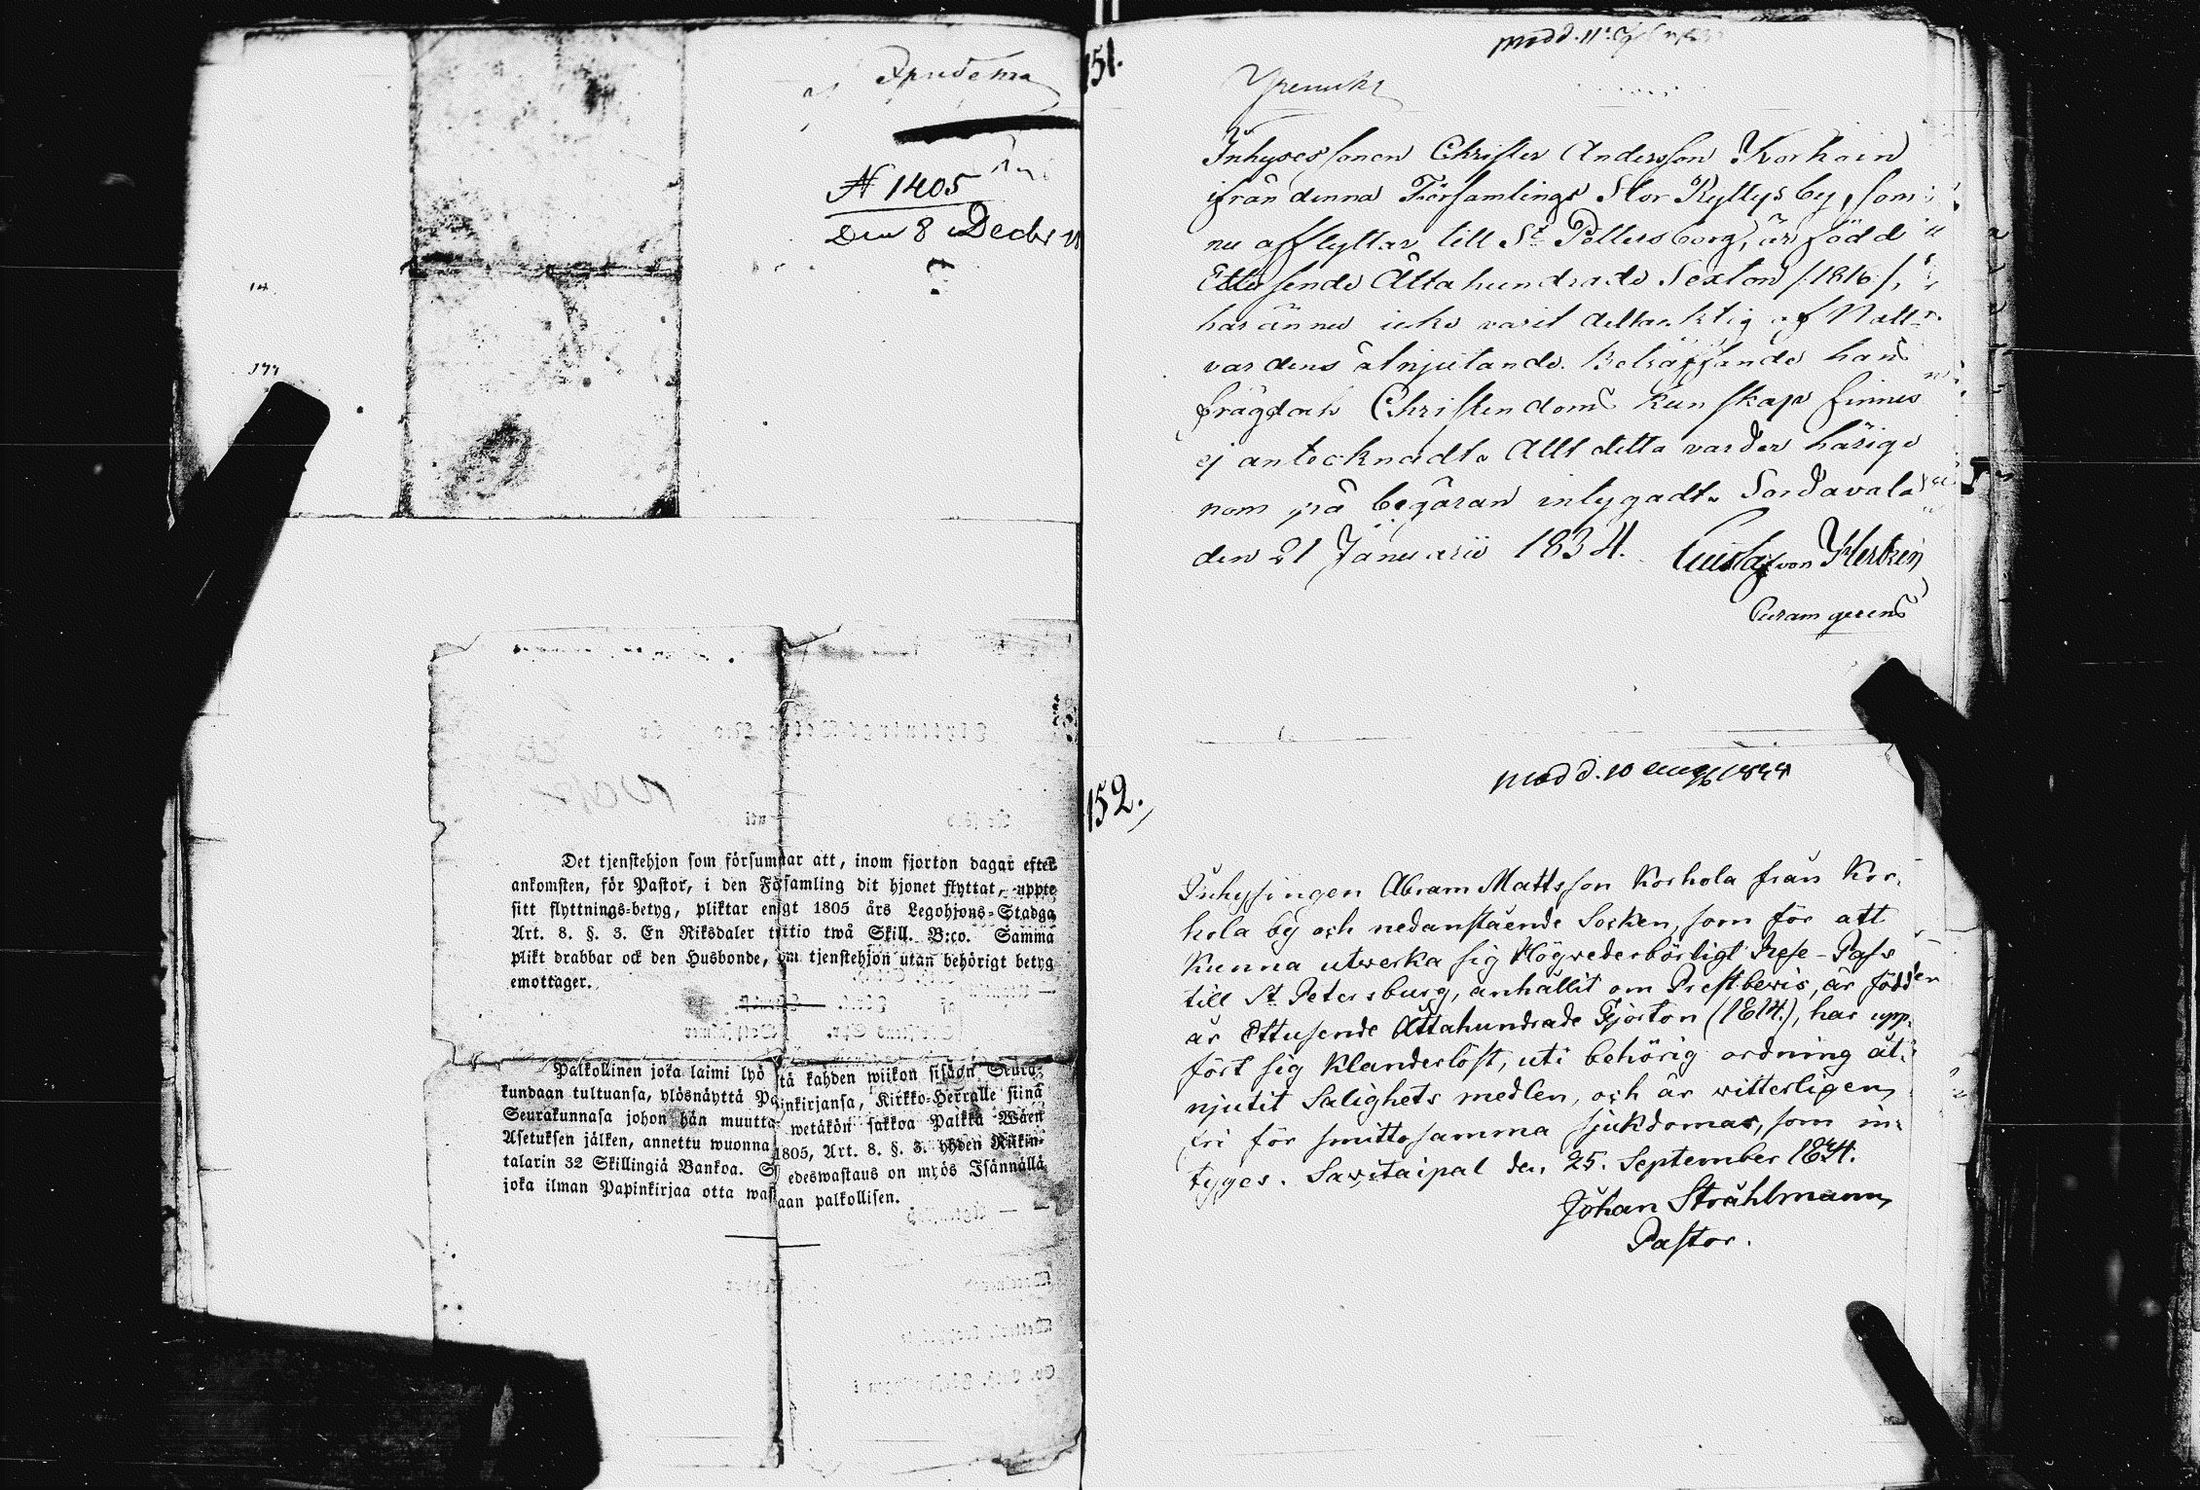 N 1405
Den 8 Decbr
14
177
Det tjenstehjon som försummar att, inom fjorton dagar efter
ankomsten, för Pastor, i den Församling dit hjonet flyttat, uppte
sitt flyttnings-betyg, pliktar enligt 1805 års Legohjons-Stadga
Art. 8. §. 3. En Riksdaler trettio twå Skill. B:co. Samma
plikt drabbar ock den Husbonde, om tjenstehjon utan behörigt betyg
emottager.
Palkollinen joka laimi lyö tä kahden wiikon sisään Seura-
kundaan tultuansa, ylösnäyttä Papinkirjansa, Kirkko-Herralle siinä
Seurakunnasa johon hän muutta wetäkön sakkoa Palkka Wäen
Asetuksen jälken, annettu wuonna 1805, Art. 8. §. 3. yhden Rikin-
talarin 32 Skillingiä Bankoa. S edeswastaus on myös Isännällä
joka ilman Papinkirjaa otta wastaan palkollisen.
151.
Inhysessonen Christer Andersson Korhoin
ifrån denna Församlings Stor Kyttys by, som
nu afflyttar till St Pettersborg, är född
Ettusende Åttahundrade Sexton /:1816:/,
har ännu icke varit delacktig af Natt-
vardens åtnjutande. Beträffande hans
frägd och Christendoms kunskap finnes
ej antecknadt. Allt detta varder härige-
nom på begäran intygadt. Sordavala
den 21 Januarii 1834. Gustaf von
Curam gerens
mod d. 10
152.
Inhysingen Abram Mattsson Korhola från Kor-
hola by och nedanstående Socken, som för att
kunna utwerka sig Högvederbörligt Rese-Pass
till St Petersburg, anhållit om Prestbevis, är född
år Ettusende Åttahundrade Fjorton (1814.), har upp-
fört sig klanderlöst, uti behörig ordning åt-
njutit Salighets medlen, och är witterligen
fri för smittosamma sjukdomar, som in-
tyges. Savitaipal den 25. September 1834.
Johan Stråhlmann,
Pastor.